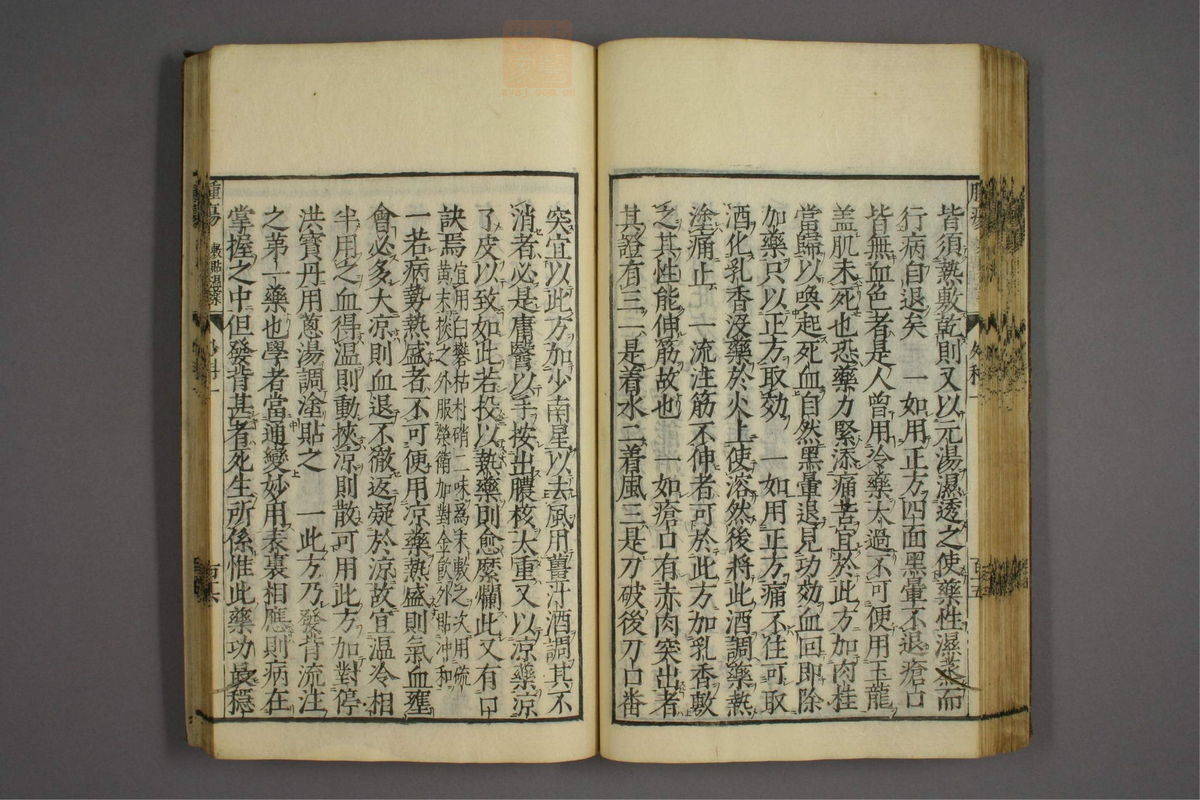 皆須熱敷乾則又以元湯濕透之使藥性濕蒸而
行病自退矣 一如用正方四面黑暈不退瘡口
皆無血色者是人曾用冷藥太過不可便用玉龍
盖肌未死也恐藥力緊添痛苦宜於此方加肉桂
當歸以喚起死血自然黑暈退見功効血回即除
加藥只以正方取効 一如用正方痛不住可取
酒化乳香沒藥於火上使溶然後將此酒調藥熱
塗痛止 一流注筋不伸者可於此方加乳香敷
之其性能伸筋故也 一如瘡口有赤肉突出者
其證有三一是着水二着風三是刀破後刀口番
突宜以此方加少南星以去風用薑汁酒調其不
消者必是庸醫以手按出膿核太重又以凉藥凉
了皮以致如此若投以熱藥則愈縻爛此又有口
訣焉宜用白礬枯朴硝二味爲末敷之次用硫
黄末摻之外服榮衛加對金飲外貼冲和
一若病勢熱盛者不可便用凉藥熱盛則氣血壅
會必多大凉則血退不徹返凝於凉故宜温冷相
半用之血得温則動挾凉則散可用此方加對停
洪寳丹用葱湯調塗貼之 一此方乃發背流注
之第一藥也學者當通變妙用表裏相應則病在
掌握之中但發背甚者死生所係惟此藥功最穩
外科一